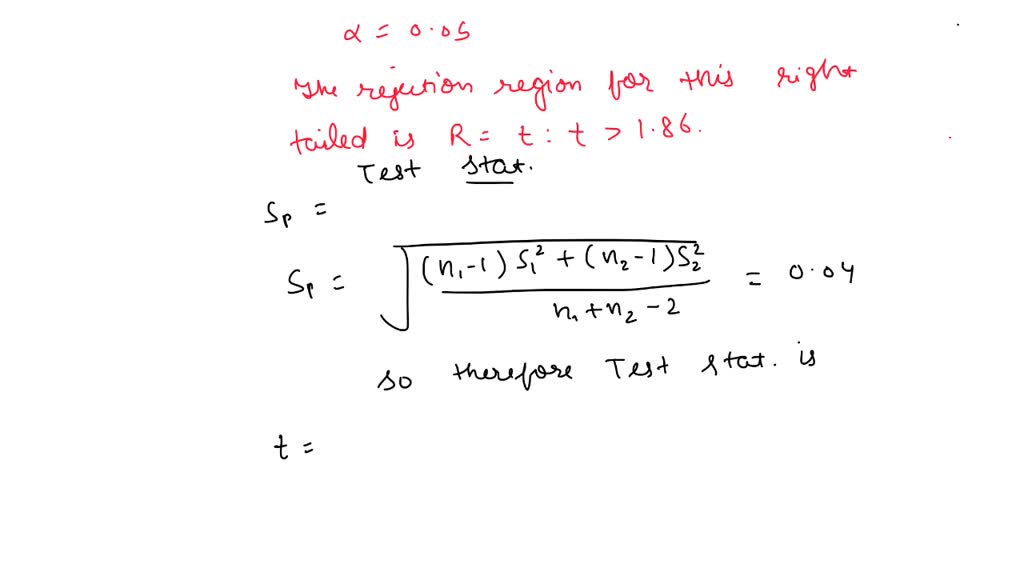 α = 0.05
The rejection region for this right
tailed is R = t : t > 1.86.
Test stat.
Sp =
Sp = √(((n₁-1) S₁² + (n₂-1) S₂²) / (n₁+n₂-2)) = 0.04
so therefore Test stat. is
t =